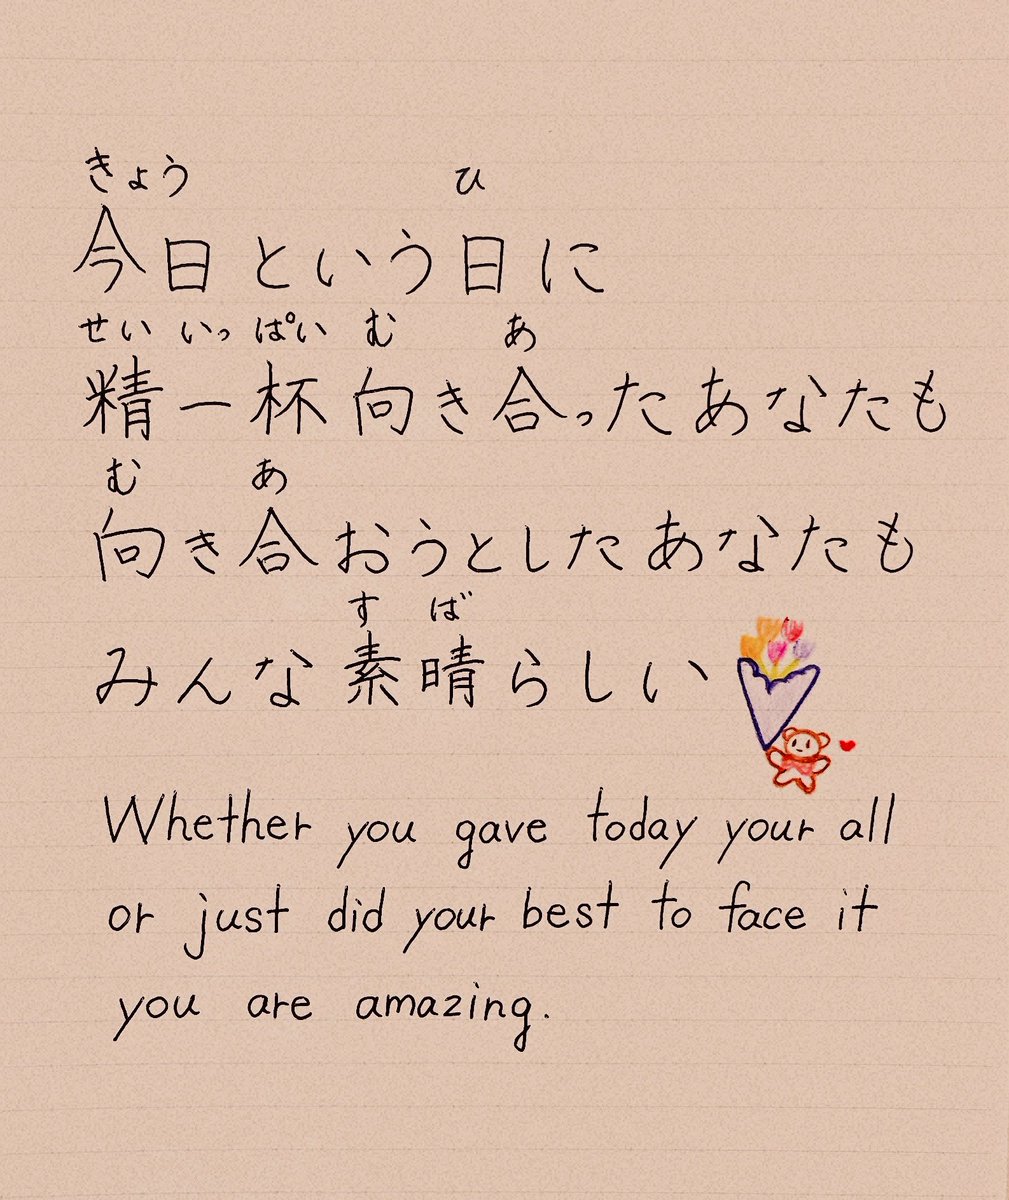 きょう ひ
今日という日に
せい いっ ぱい む あ
精一杯向き合ったあなたも
む あ
向き合おうとしたあなたも
す ば
みんな素晴らしい
Whether you gave today your all
or just did your best to face it
you are amazing.